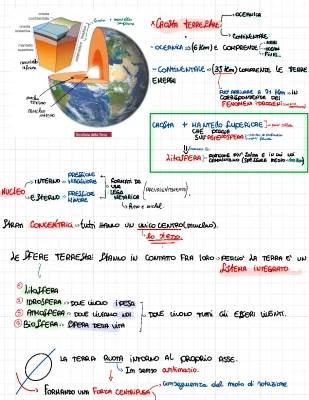 crosta
oceanica
crosta
continentale
mantello
superiore
crosta + mantello
superiore
mantello
inferiore
nucleo
esterno
nucleo
interno
Struttura della Terra
* CROSTA TERRESTRE
OCEANICA
CONTINENTALE
- OCEANICA → (6 Km) E COMPRENDE
MARI
FIUMI..
- CONTINENTALE → (35 Km) COMPRENDE LE TERRE
EMERSE
PUÒ ARRIVARE A 71 Km → IN
CORRISPONDENZA DEI
FENOMENI OROGENICI
CROSTA + MANTELLO SUPERIORE
CHE POGGIA
SULL'ASTENOSFERA
LITOSFERA
NUCLEO
INTERNO → PRESSIONE
MAGGIORE
ESTERNO → PRESSIONE
MINORE
FORMATI DA
UNA
LEGA
METALLICA
(PREVALENTEMENTE).
Ferro e nichel.
STRATI CONCENTRICI → TUTTI HANNO UN UNICO CENTRO (NUCLEO).
lo stesso.
LE SFERE TERRESTRI STANNO IN CONTATTO FRA LORO → PERCIÒ LA TERRA E' UN
SISTEMA INTEGRATO
① LITOSFERA
② IDROSFERA → DOVE VIVONO I PESCI
③ ATMOSFERA → DOVE VIVIAMO NOI
④ BIOSFERA → SFERA DELLA VITA
DOVE VIVONO TUTTI GLI ESSERI VIVENTI.
LA TERRA RUOTA INTORNO AL PROPRIO ASSE.
In senso antiorario.
FORMANDO UNA FORZA CENTRIFUGA
conseguenza del moto di rotazione